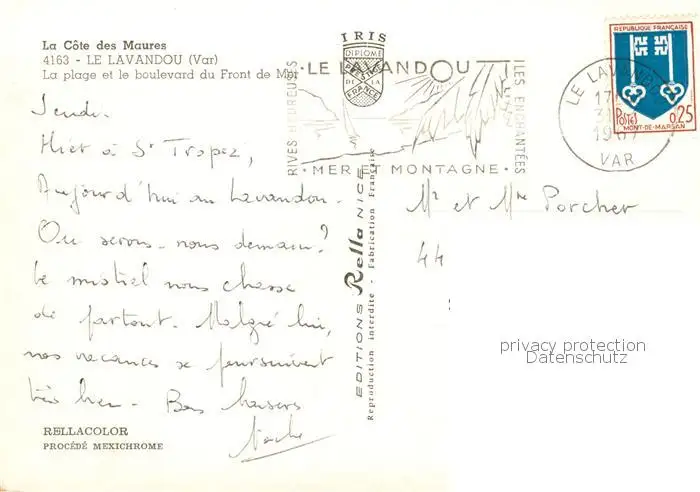 La Côte des Maures
4163 - LE LAVANDOU (Var)
La plage et le boulevard du Front de Mer
Jeudi.
Hier à St Tropez,
Aujourd'hui au Lavandou.
Où serons-nous demain?
Le mistral nous chasse
de partout. Malgré lui,
nos vacances se poursuivent
très bien - Bons baisers
RELLACOLOR
PROCÉDÉ MEXICHROME
IRIS
DIPLOME
PRESTIGE
DE LA
FRANCE
RIVES HEUREUSES
·LE LAVANDOU
ILES ENCHANTÉES
·MER ET MONTAGNE·
EDITIONS Rella NICE
Reproduction interdite - Fabrication Française
LE LAVANDOU
17
VAR
REPUBLIQUE FRANÇAISE
POSTES 0,25
MONT-DE-MARSAN
Mr et Mme Porcher
44
privacy protection
Datenschutz